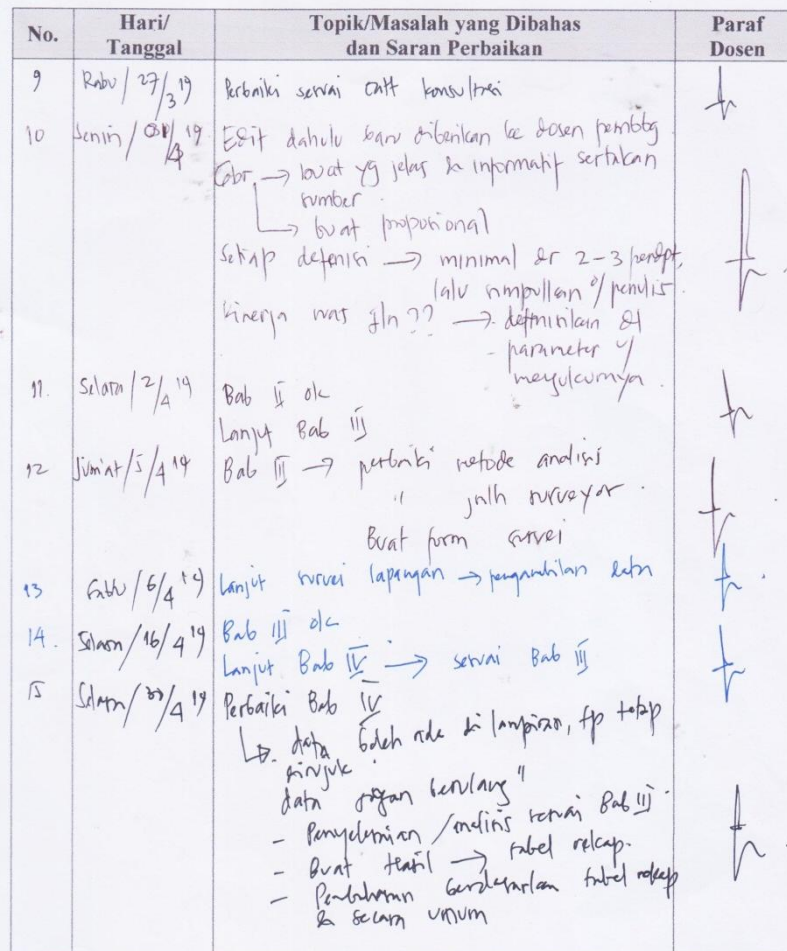 No.
Hari/
Tanggal
Topik/Masalah yang Dibahas
dan Saran Perbaikan
Paraf
Dosen
9 Rabu / 27/3 19 Perbaiki sesuai catt konsultasi
10 Senin / 01/4 19 Edit dahulu baru diberikan ke dosen pembbg
Gbr. → buat yg jelas & informatif sertakan
sumber
→ buat proporsional
Setiap defenisi → minimal dr 2-3 pendpt,
lalu simpulkan o/ penulis
Kinerja ruas jln ?? → definisikan dg
- parameter u/
mengukurnya.
11. Selasa / 2/4 19 Bab II ok
Lanjut Bab III
12 Jum'at / 5/4 19 Bab III → perbaiki metode analisis
" jmlh surveyor.
Buat form survei
13 Sabtu / 6/4 19 Lanjut survei lapangan → pengambilan data
14. Selasa / 16/4 19 Bab III ok
Lanjut Bab IV → sesuai Bab III
15 Selasa / 30/4 19 Perbaiki Bab IV
↳. data boleh ada di lampiran, tp tetap
dirujuk.
data jangan berulang"
- Penyelesaian / analisis sesuai Bab III.
- Buat hasil → tabel rekap.
- Pembahasan berdasarkan tabel rekap
& secara umum